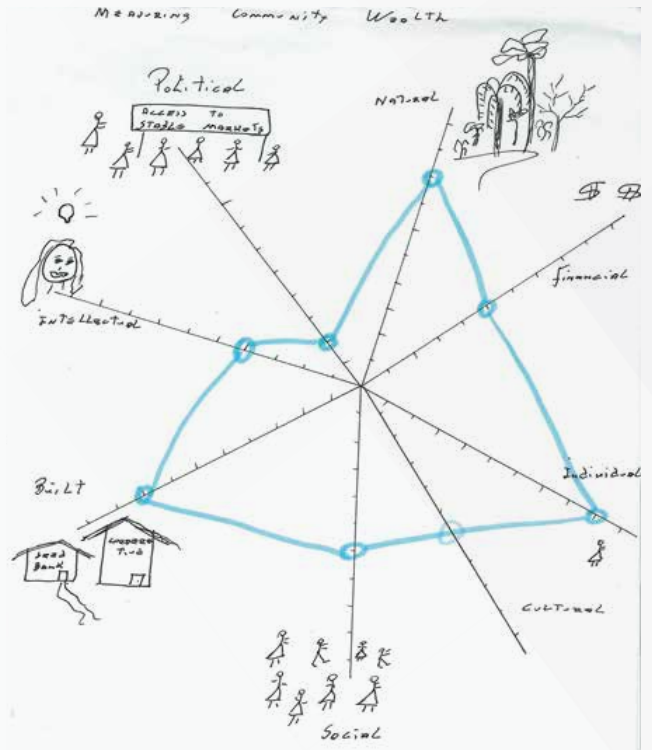 MEASURING COMMUNITY WEALTH
Political
ACCESS TO
STABLE MARKETS
NATURAL
$ $
Financial
INTELLECTUAL
Individual
BUILT
SEED
BANK
CULTURAL
SOCIAL